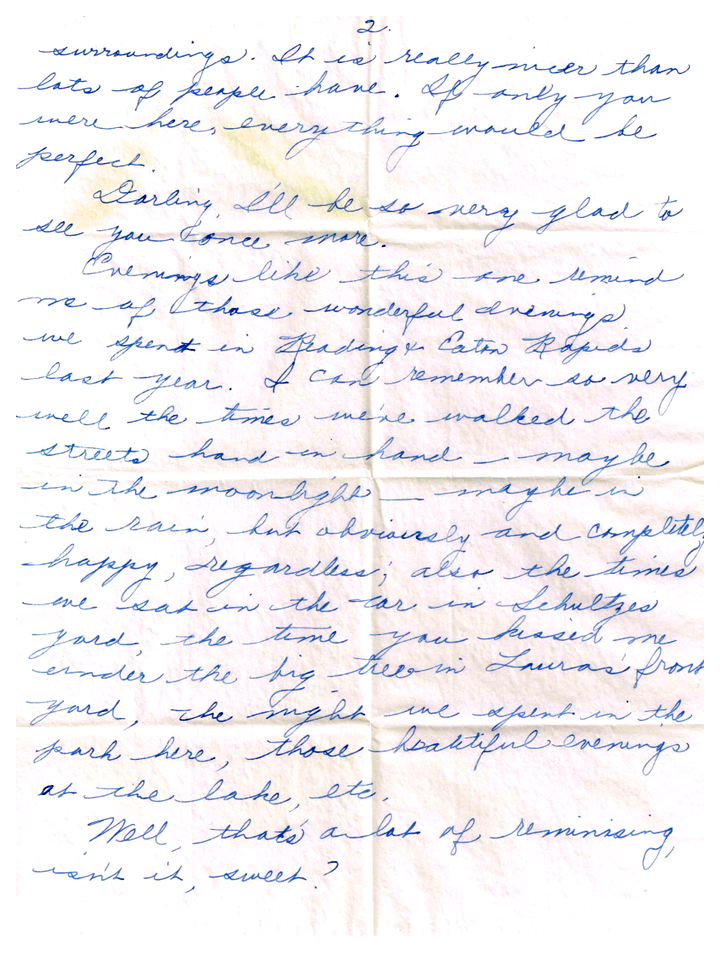 2.
surroundings. It is really nicer than
lots of people have. If only you
were here, everything would be
perfect.
Darling, I'll be so very glad to
see you once more.
Evenings like this one remind
me of those wonderful evenings
we spent in Reading & Eaton Rapids
last year. I can remember so very
well the times we've walked the
streets hand in hand — maybe
in the moonlight — maybe in
the rain, but obviously and completely
happy, regardless; also the times
we sat in the car in Schultzes
yard, the time you kissed me
under the big tree in Lauras' front
yard, the night we spent in the
park here, those beautiful evenings
at the lake, etc.
Well, that's a lot of reminising,
isn't it, sweet?